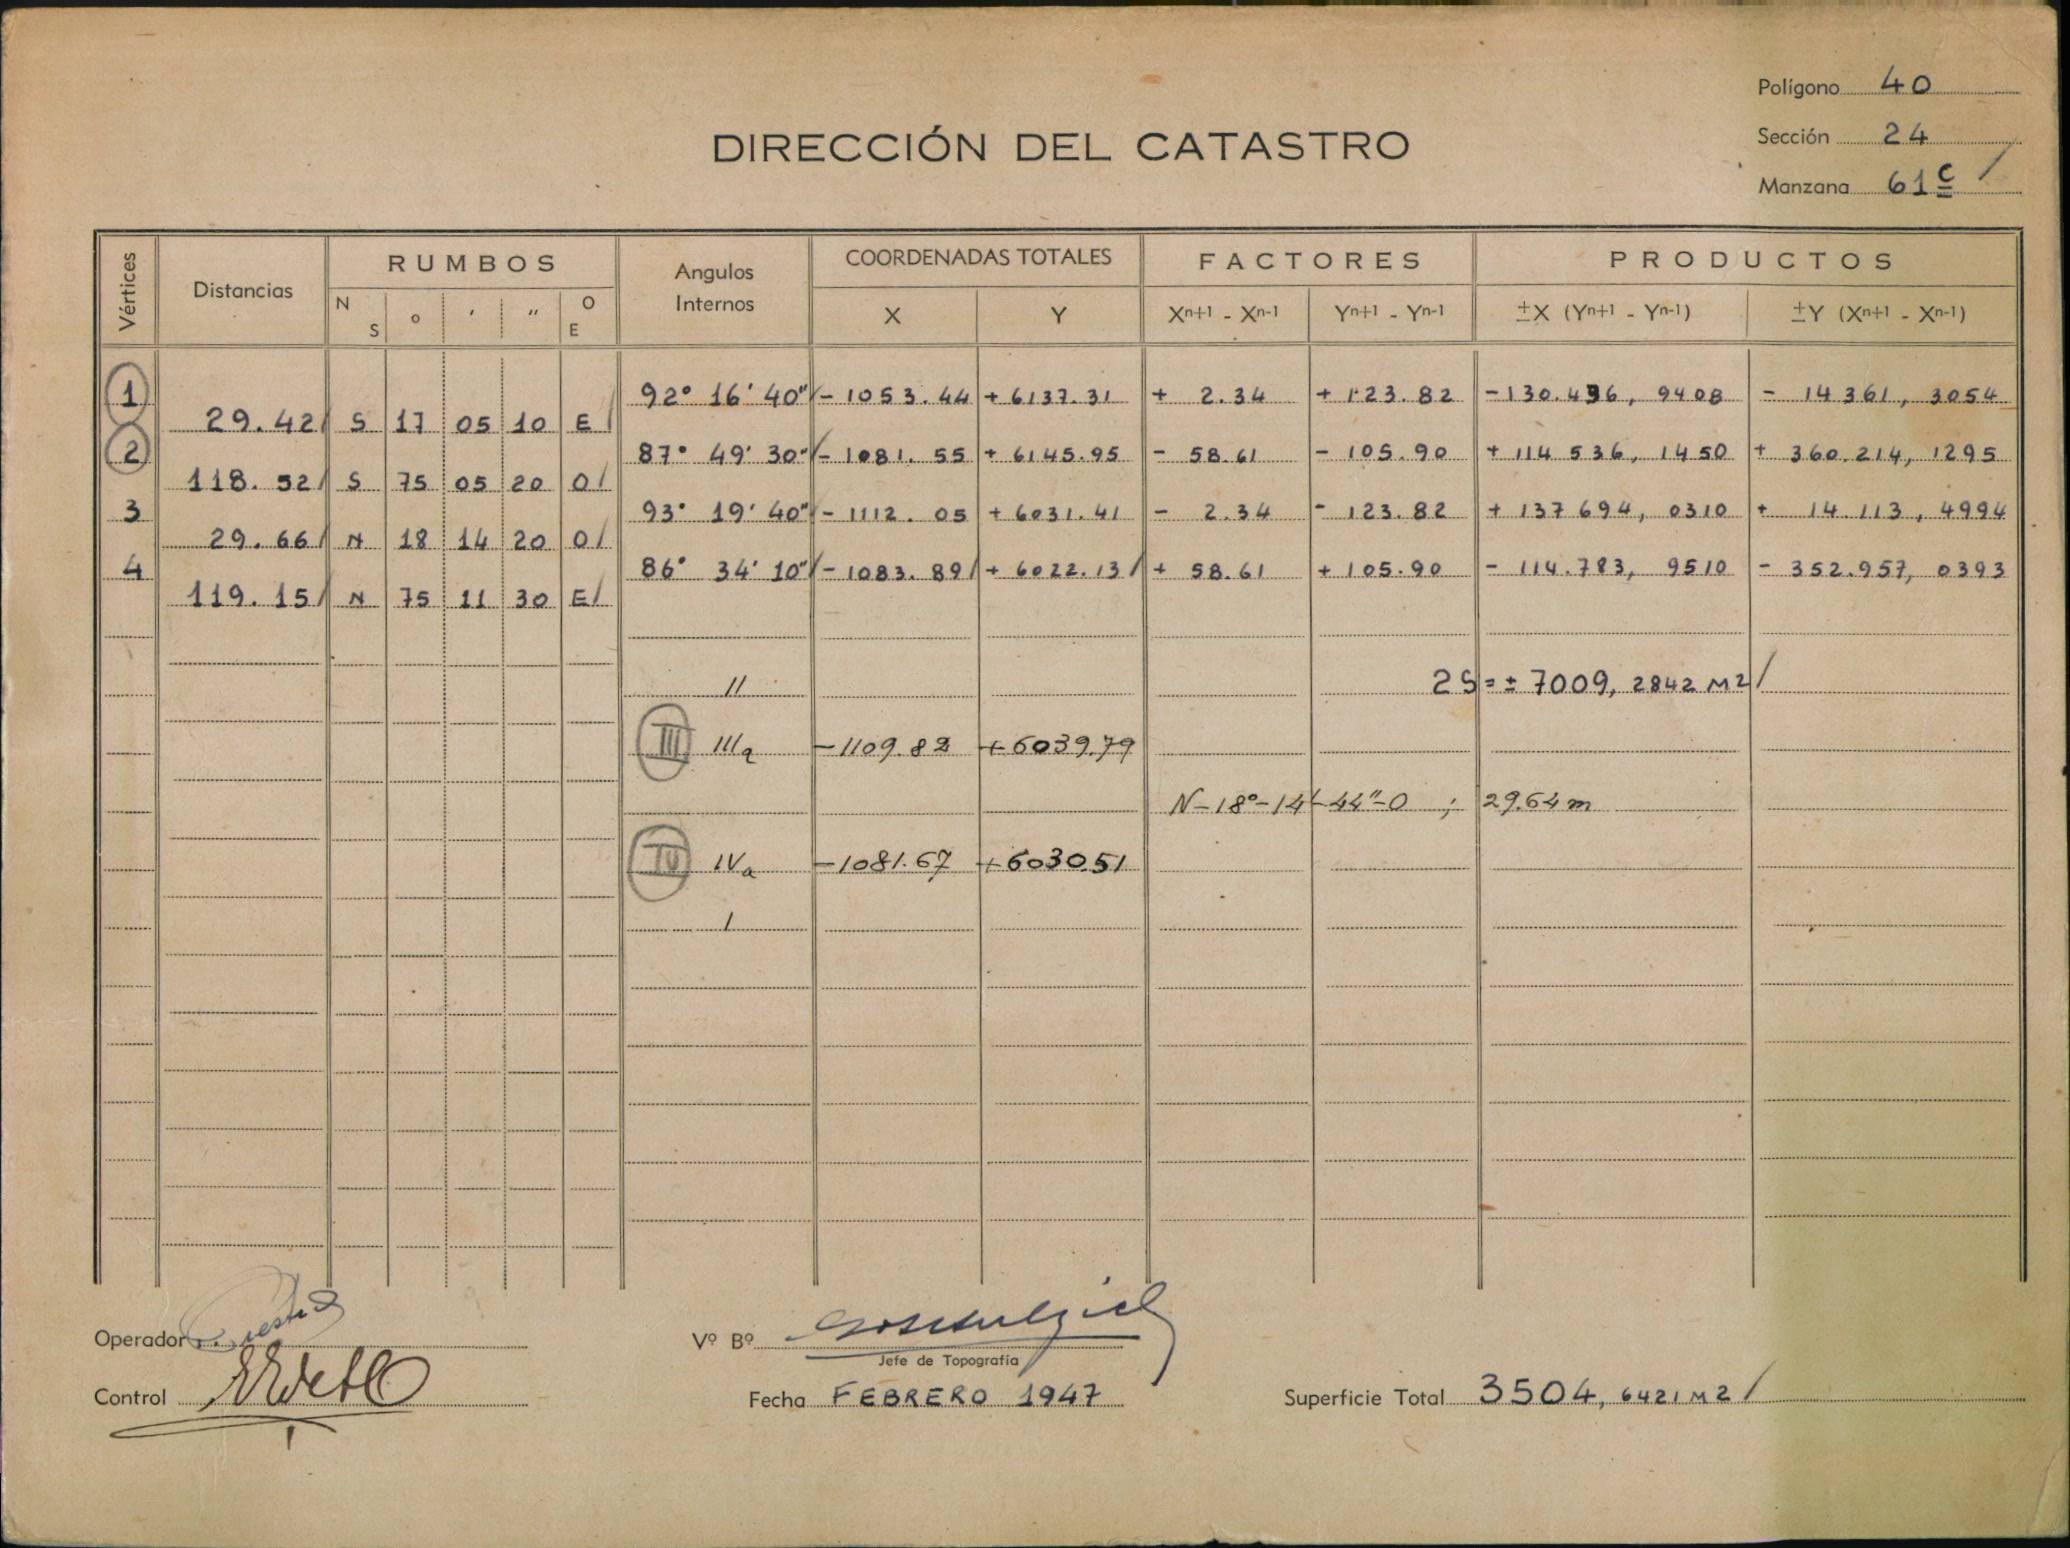 Polígono 40
DIRECCIÓN DEL CATASTRO
Sección 24
Manzana 61 c /
Vértices Distancias RUMBOS Angulos Internos COORDENADAS TOTALES FACTORES PRODUCTOS
N S o ' " O E X Y Xn+1 - Xn-1 Yn+1 - Yn-1 ±X (Yn+1 - Yn-1) ±Y (Xn+1 - Xn-1)
1 92° 16' 40" - 1053.44 + 6137.31 + 2.34 + 123.82 - 130.436, 9408 - 14361, 3054
29.42 S 17 05 10 E
2 87° 49' 30" - 1081.55 + 6145.95 - 58.61 - 105.90 + 114 536, 1450 + 360.214, 1295
118.52 S 75 05 20 O
3 93° 19' 40" - 1112.05 + 6031.41 - 2.34 - 123.82 + 137 694, 0310 + 14.113, 4994
29.66 N 18 14 20 O
4 86° 34' 10" - 1083.89 + 6022.13 + 58.61 + 105.90 - 114.783, 9510 - 352.957, 0393
119.15 N 75 11 30 E
II 2S = ± 7009, 2842 M2 /
III IIIa - 1109.82 + 6039.79
N-18°-14'-44"-O ; 29.64 m
IV IVa - 1081.67 + 6030.51
I
Operador
Vº Bº
Jefe de Topografía
Control
Fecha FEBRERO 1947
Superficie Total 3504, 6421 M2 /